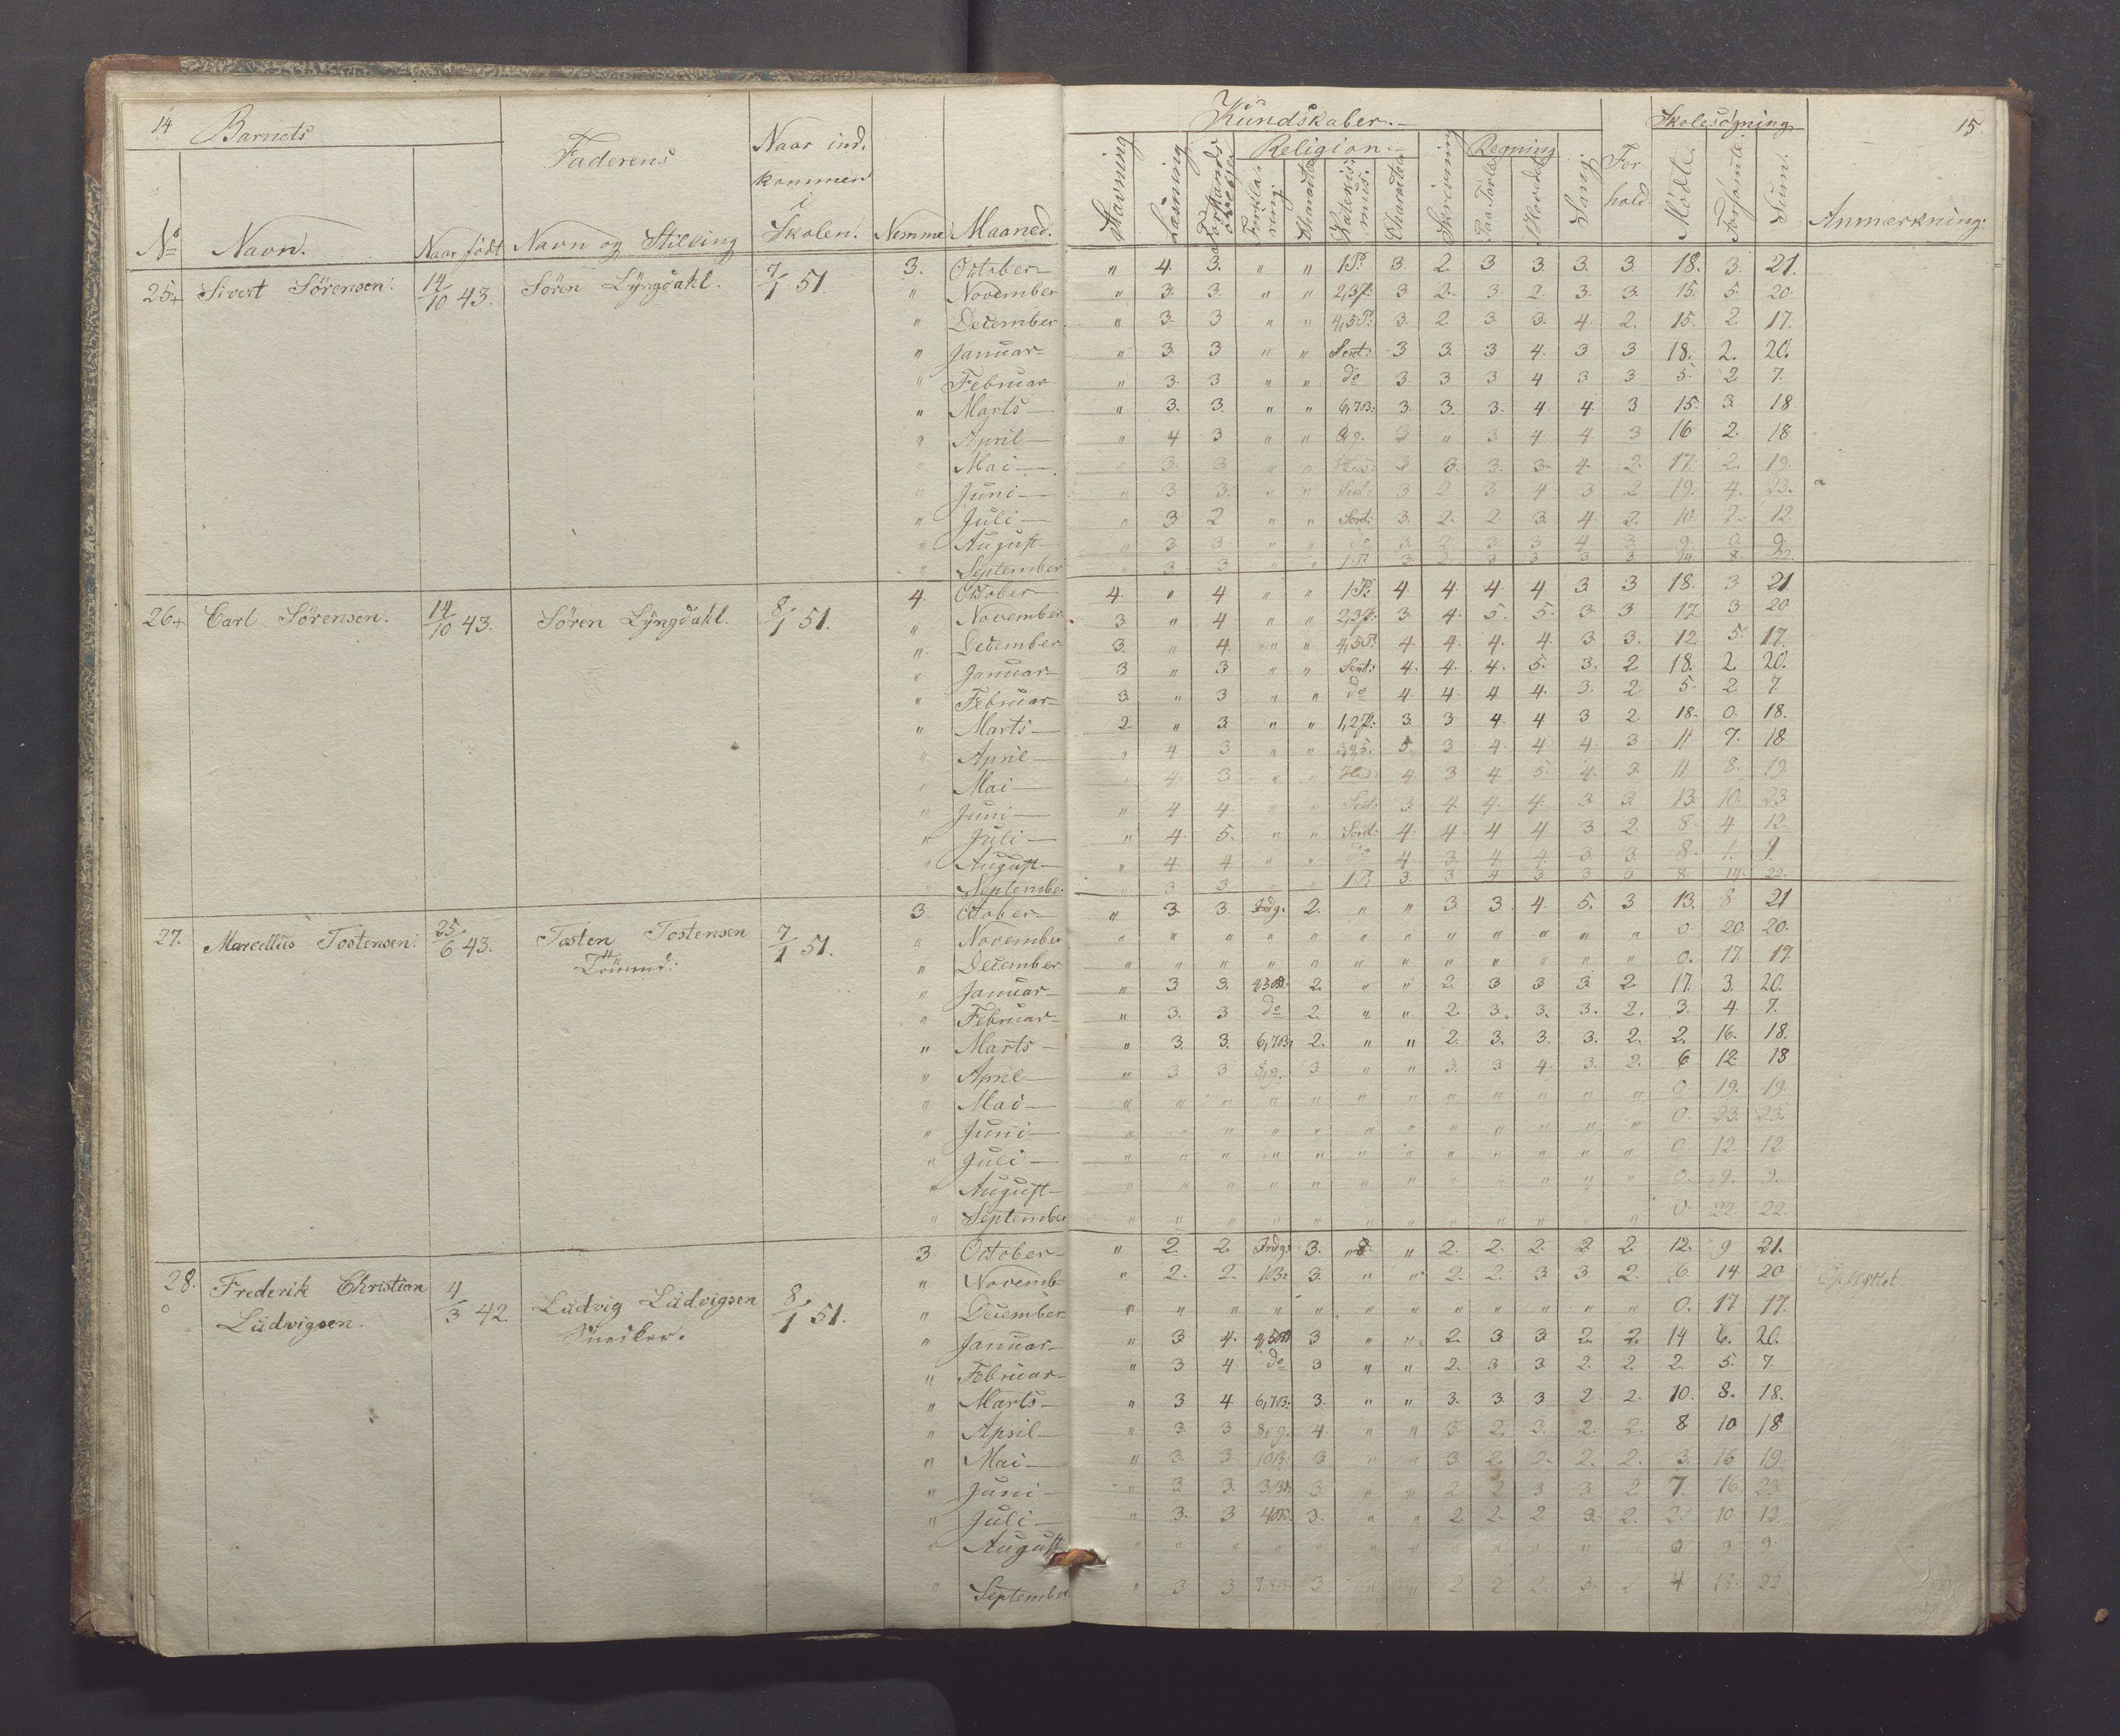 14 Barnets Faderens Naar ind. Kundskaber.- Skolesøgning 15.
kommen Religion.- Regning For
i Stavning Læsning Forstands øvelse Forkla- ring Charakter Katekis- mus. Charakter Skrivning Paa Tavle Hovedet Sang hold. Mödte. Forsömte. Sum.
No Navn. Naar født Navn og Stilling Skolen. Nemme Maaned. Anmærkning:
25+ Sivert Sörensen. 14/10 43. Sören Lyngdahl. 7/1 51. 3. October " 4. 3. " " 1 P: 3. 2. 3 3. 3. 3. 18. 3. 21.
" November " 3. 3. " " 2,3 P: 3 2. 3. 2. 3. 3. 15. 5. 20.
" December " 3. 3 " " 4,5 P: 3. 2 3 3. 4. 2. 15. 2. 17.
" Januar " 3 3 " " Sent: 3 3. 3 4. 3 3 18. 2. 20.
" Februar " 3. 3 " " do 3. 3 3 4 3 3 5. 2 7.
" Marts " 3. 3. " " 6,7 B: 3. 3. 3. 4. 4. 3 15. 3 18
" April " 4 3 " " 8,9. 3 " 3 4 4 3 16 2. 18
" Mai " 3. 3 " " 3 3. 3. 3. 4. 2. 17. 2. 19.
" Juni " 3 3. " " Sent: 3 2. 3 4 3 2 19. 4. 23.
" Juli " 3 2 " " Sent: 3. 2. 2. 3. 4. 2. 10. 2. 12.
" August " 3 3. " " do 3. 2. 3. 3 4. 3. 9. 0. 9.
" September " 3. 3 " " 1 P: 3. 2. 3 3 3 3 14 8. 22.
26+ Carl Sörensen. 14/10 43. Sören Lyngdahl. 8/1 51. 4. October 4. " 4 " " 1 P: 4. 4. 4. 4 3 3 18. 3 21
" November 3 " 4 " " 2,3 P: 3 4. 5. 5. 3 3 17. 3 20
" December 3. " 4. " " 4,5 P: 4. 4. 4. 4. 3. 3. 12. 5. 17.
" Januar 3 " 3 " " Sent: 4. 4. 4. 5. 3. 2 18. 2 20.
" Februar 3. " 3 " " do 4. 4. 4 4. 3. 2 5. 2 7.
" Marts 2 " 3 " " 1,2 P: 3 3 4 4 3 2 18. 0. 18.
" April " 4 3 " " 3,4,5. 5. 3 4. 4. 4. 3 11 7. 18
" Mai " 4. 3 " " 4. 3 4. 5. 4. 3. 11. 8. 19.
" Juni " 4 4 " " Sent: 3 4. 4. 4. 3 3 13. 10. 23
" Juli " 4. 5. " " Sent: 4. 4. 4 4 3 2. 8. 4 12.
" August " 4. 4 " " do 4. 3. 4. 4. 3. 3. 8. 1. 9.
" September " 3 3 " " 1 P: 3. 3 4 3 3 3 8. 14. 22.
27. Marcellus Tostensen. 25/6 43. Tosten Tostensen 7/1 51. 3. October " 3. 3. 2. " " 3 3. 4. 5. 3 13. 8 21
" November " " " " " " " " " " " " 0. 20 20.
" December " " " " " " " " " " " " 0. 17. 17.
" Januar " 3. 3. 2. " " 2. 3 3 3. 2 17. 3. 20.
" Februar " 3. 3 do 2. " " 2. 3. 3. 3. 2. 3. 4. 7.
" Marts " 3. 3. 6,7 B: 2. " " 2. 3. 3. 3. 2. 2. 16. 18.
" April " 3. 3 8,9. 3 " " 3. 3 4. 3. 2. 6 12. 18
" Mai " " " " " " " " " " " " 0 19. 19.
" Juni " " " " " " " " " " " " 0. 23. 23.
" Juli " " " " " " " " " " " " 0 12. 12.
" August " " " " " " " " " " " " 0. 9. 9.
" September " " " " " " " " " " " " 0. 22. 22.
28. Frederik Christian 4/3 42. Ludvig Ludvigsen 8/1 51. 3. October " 2. 2. 3. " 2. 2. 2. 2. 2 12. 9 21.
Ludvigsen. Snedker. " Novemb " 2. 2. 10 B: 3. " " 2. 2. 3 3 2. 6. 14. 20
" December " " " " " " " " " " " " 0. 17. 17.
" Januar " 3 4. 3 " " 2. 3 3 2. 2. 14 6. 20.
" Februar " 3 4. do 3 " " 2. 3 3 2. 2. 2. 5. 7.
" Marts " 3 4. 6,7 B: 3. " " 3. 3. 3 2. 2. 10. 8. 18.
" April " 3. 3 8,9. 4. " " 3. 2. 3. 2. 2. 8 10 18
" Mai " 3. 3 10 B: 3 " " 3. 2. 2. 2. 2. 3. 16 19.
" Juni " 3 3. 3 " " 2 2 3 3 2 7. 16 23.
" Juli " 3. 3 3. " " 2. 2. 2 3. 2. 2. 10 12.
" August " " " " " " " " " " " 0 9. 9.
" September " 3 3 3 " " 2 2 2 3. 2 4 18. 22